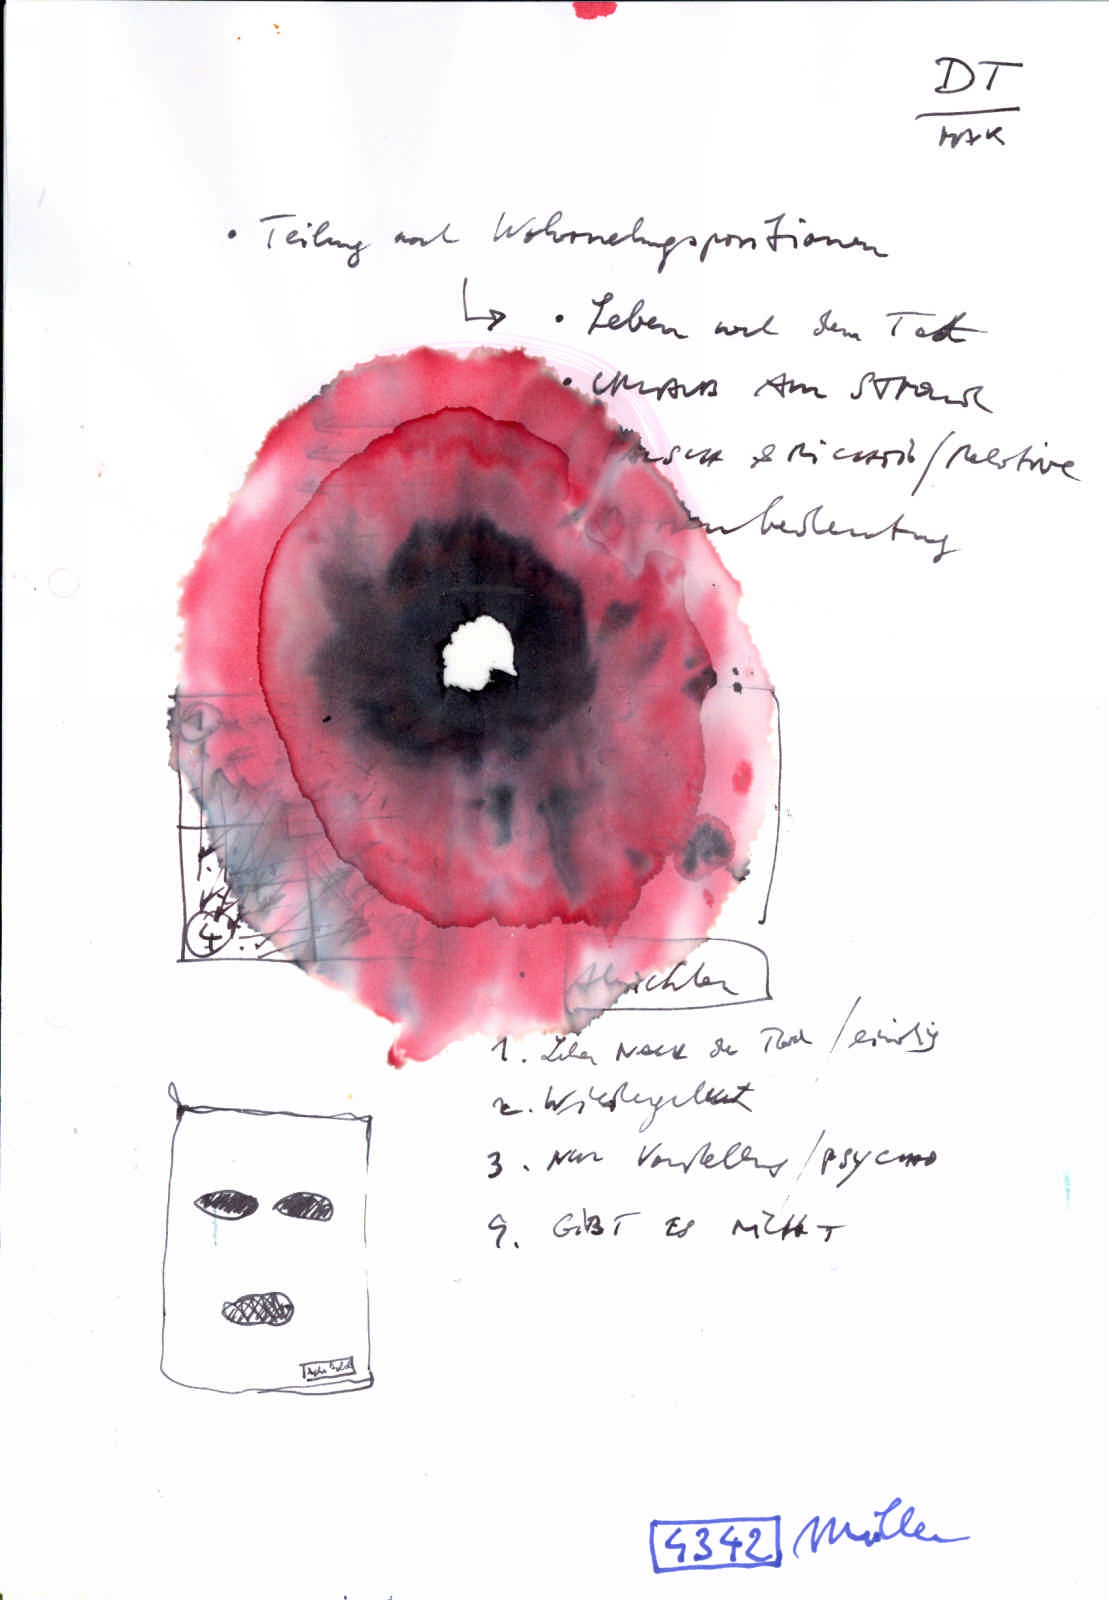 DT
MAK
• Teilung nach Wahrnehmungspositionen
• Leben nach dem Tod
• URLAUB AM STRAND
& RICHTIG / Relative
bedeutung
1
4
Ansichten
1. Leben NACH dem Tod / eindtig
2. Wiedergeburt
3. NUR Vorstellung / PSYCHO
4. GIBT ES NICHT
4342 Müller